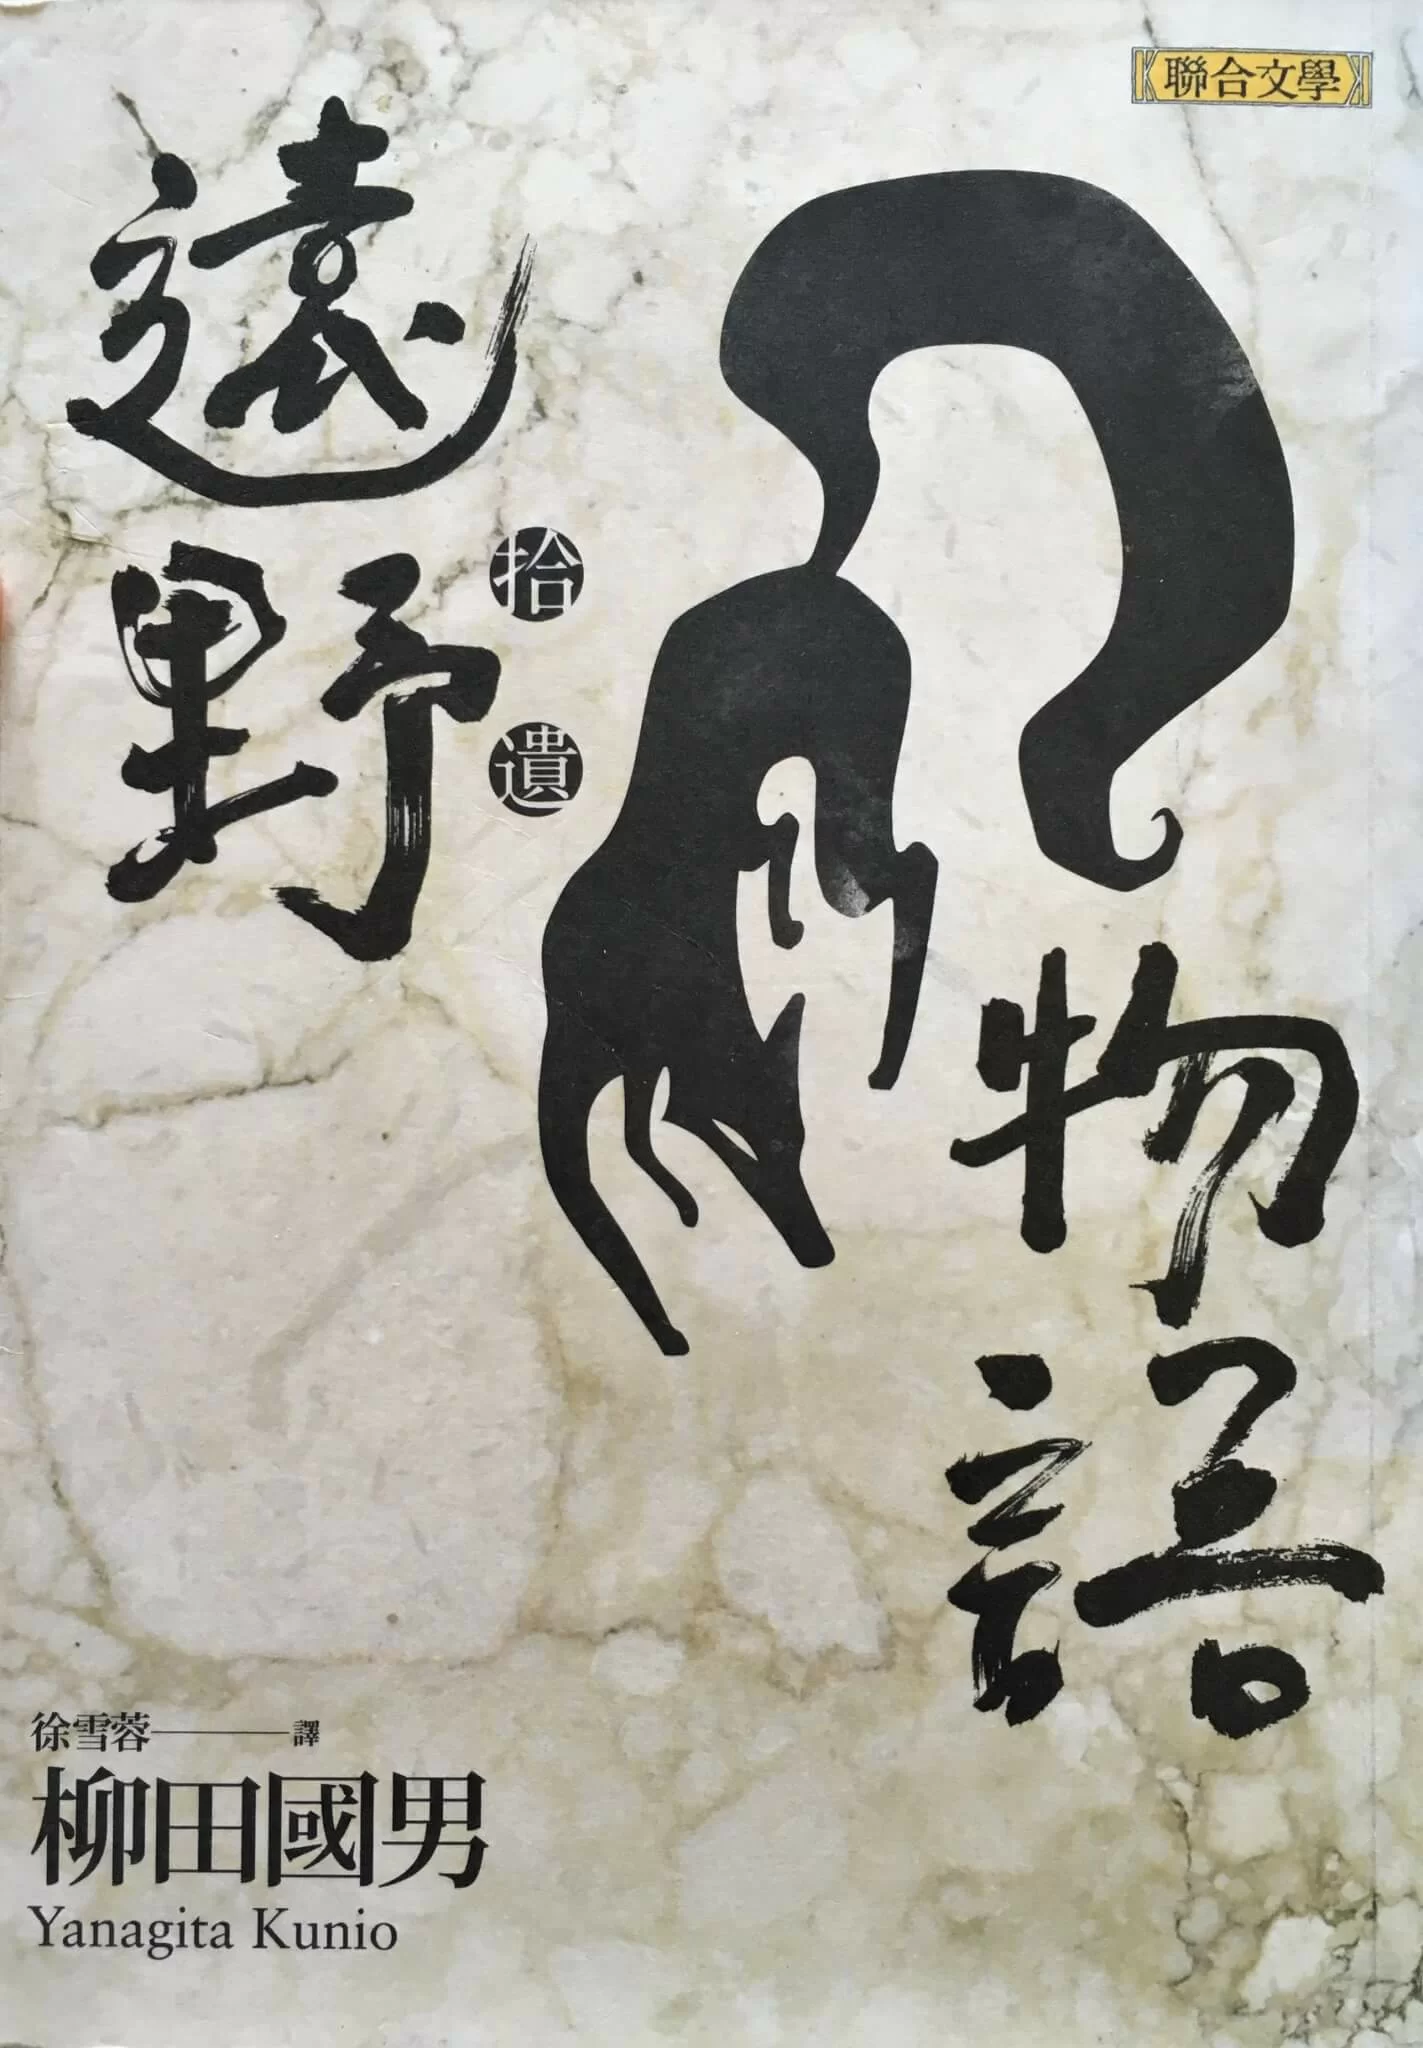 聯合文學
遠野
拾遺
物語
徐雪蓉——譯
柳田國男
Yanagita Kunio